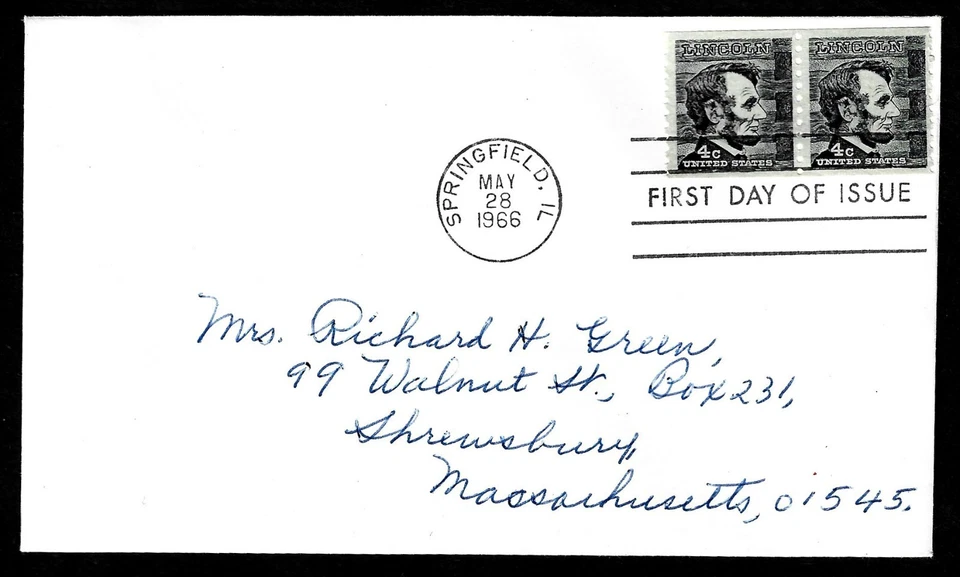 LINCOLN LINCOLN
4c 4c
UNITED STATES UNITED STATES
SPRINGFIELD, IL
MAY
28
1966
FIRST DAY OF ISSUE
Mrs. Richard H. Green,
99 Walnut St., Box 231,
Shrewsbury,
Massachusetts, 01545.